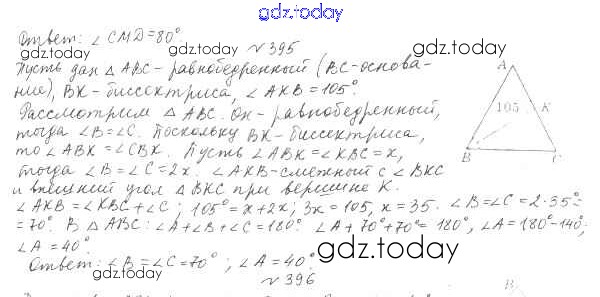 gdz.today
Ответ: ∠ CMD = 80°
gdz.today
№ 395
gdz.today
Пусть дан △ ABC - равнобедренный (BC-основа-
ние), BK - биссектриса, ∠ AKB = 105°.
Рассмотрим △ ABC. Он - равнобедренный,
тогда ∠B = ∠C. Поскольку BK - биссектриса,
то ∠ABK = ∠CBK. Пусть ∠ABK = ∠KBC = x,
тогда ∠B = ∠C = 2x. ∠AKB - смежный с ∠BKC
и внешний угол △ BKC при вершине K.
∠AKB = ∠KBC + ∠C; 105° = x + 2x; 3x = 105, x = 35. ∠B = ∠C = 2·35° =
= 70°. В △ ABC: ∠A + ∠B + ∠C = 180° ∠A + 70° + 70° = 180°, ∠A = 180° - 140°;
∠A = 40°.
Ответ: ∠B = ∠C = 70°; ∠A = 40°.
gdz.today
gdz.today
№ 396
A
105
K
B
C
B